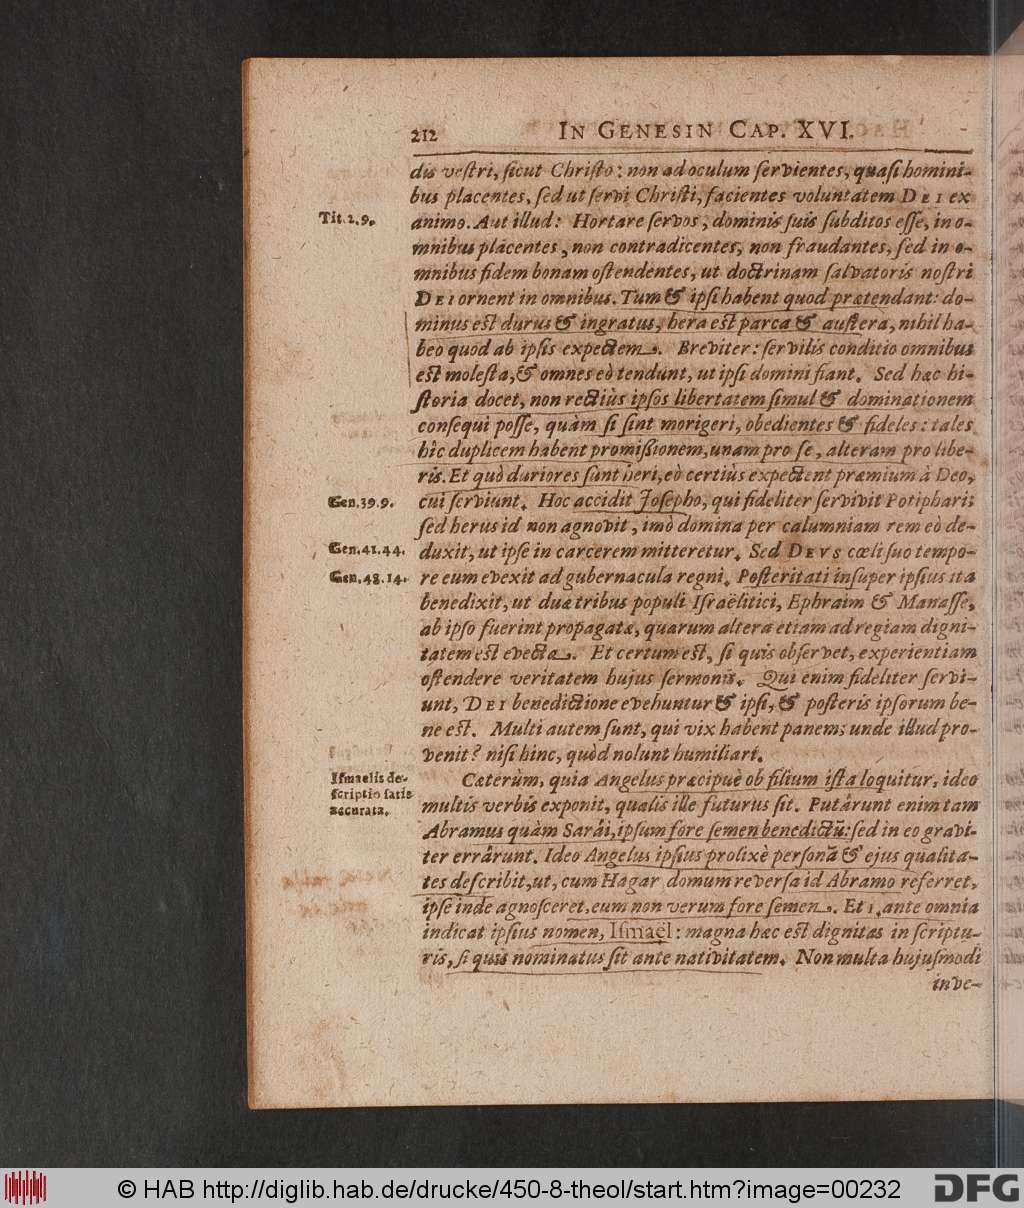 212 IN GENESIN CAP. XVI.
dis vestri, sicut Christo: non ad oculum servientes, quasi homini-
bus placentes, sed ut servi Christi, facientes voluntatem DEI ex
Tit. 2. 9. animo. Aut illud: Hortare servos, dominis suis subditos esse, in o-
mnibus placentes, non contradicentes, non fraudantes, sed in o-
mnibus fidem bonam ostendentes, ut doctrinam salvatoris nostri
DEI ornent in omnibus. Tum & ipsi habent quod prætendant: do-
minus est durus & ingratus, hera est parca & austera, nihil ha-
beo quod ab ipsis expectem. Breviter: servilis conditio omnibus
est molesta, & omnes eò tendunt, ut ipsi domini fiant. Sed hæc hi-
storia docet, non rectiùs ipsos libertatem simul & dominationem
consequi posse, quàm si sint morigeri, obedientes & fideles: tales
hîc duplicem habent promißionem, unam pro se, alteram pro libe-
ris. Et quò duriores sunt heri, eò certiùs expectent præmium à Deo,
Gen. 39. 9. cui serviunt. Hoc accidit Josepho, qui fideliter servivit Potiphari:
sed herus id non agnovit, imò domina per calumniam rem eò de-
Gen. 41. 44. duxit, ut ipse in carcerem mitteretur. Sed DEVS cœli suo tempo-
Gen. 48. 14. re eum evexit ad gubernacula regni. Posteritati insuper ipsius ita
benedixit, ut duæ tribus populi Israëlitici, Ephraim & Manasse,
ab ipso fuerint propagatæ, quarum altera etiam ad regiam digni-
tatem est evecta. Et certum est, si quis observet, experientiam
ostendere veritatem hujus sermonis. Qui enim fideliter servi-
unt, DEI benedictione evehuntur & ipsi, & posteris ipsorum be-
ne est. Multi autem sunt, qui vix habent panem; unde illud pro-
venit? nisi hinc, quòd nolunt humiliari.
Ismaelis de- Cæterùm, quia Angelus præcipuè ob filium ista loquitur, ideo
scriptio satis multis verbis exponit, qualis ille futurus sit. Putârunt enim tam
accurata. Abramus quàm Sarái, ipsum fore semen benedictũ: sed in eo gravi-
ter errârunt. Ideo Angelus ipsius prolixè personã & ejus qualita-
tes describit, ut, cum Hagar domum reversa id Abramo referret,
ipse inde agnosceret, eum non verum fore semen. Et 1. ante omnia
indicat ipsius nomen, Ismaël: magna hæc est dignitas in scriptu-
ris, si quis nominatus sit ante nativitatem. Non multa hujusmodi
inve-
© HAB http://diglib.hab.de/drucke/450-8-theol/start.htm?image=00232
DFG